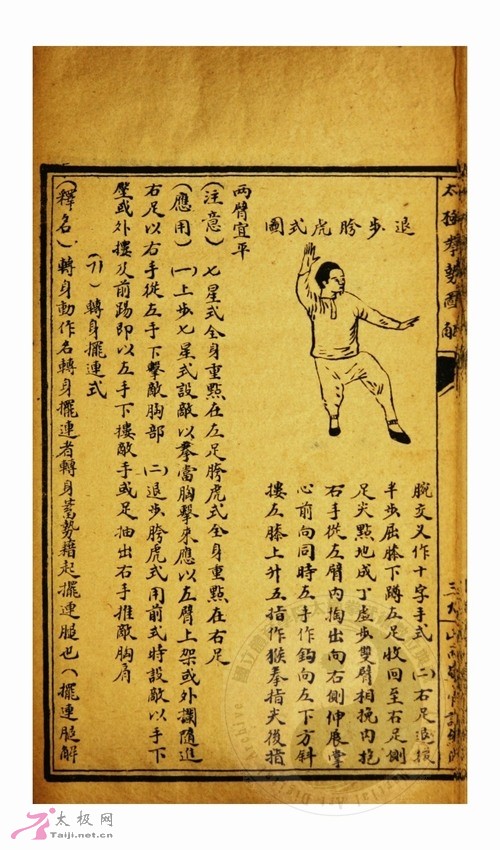 太極拳勢圖解
退步胯虎式圖
腕交叉作十字手式 (二)右足退後
半步屈膝下蹲左足收回至右足側
足尖點地成丁虛步雙臂相挽內抱
右手從左臂內掏出向右側伸展掌
心前向同時左手作鈎向左下方斜
摟左膝上升五指作猴拳指尖後指
兩臂宜平
(注意)七星式全身重點在左足胯虎式全身重點在右足
(應用)(一)上步七星式設敵以拳當胸擊來應以左臂上架或外攔隨進
右足以右手從左手下擊敵胸部 (二)退步胯虎式用前式時設敵以手下
壓或外摟及前踢即以左手下摟敵手或足抽出右手推敵胸肩
(71)轉身擺連式
(釋名)轉身動作名轉身擺連者轉身蓄勢藉起擺連腿也(擺連腿解
太极网
Taiji.net.cn